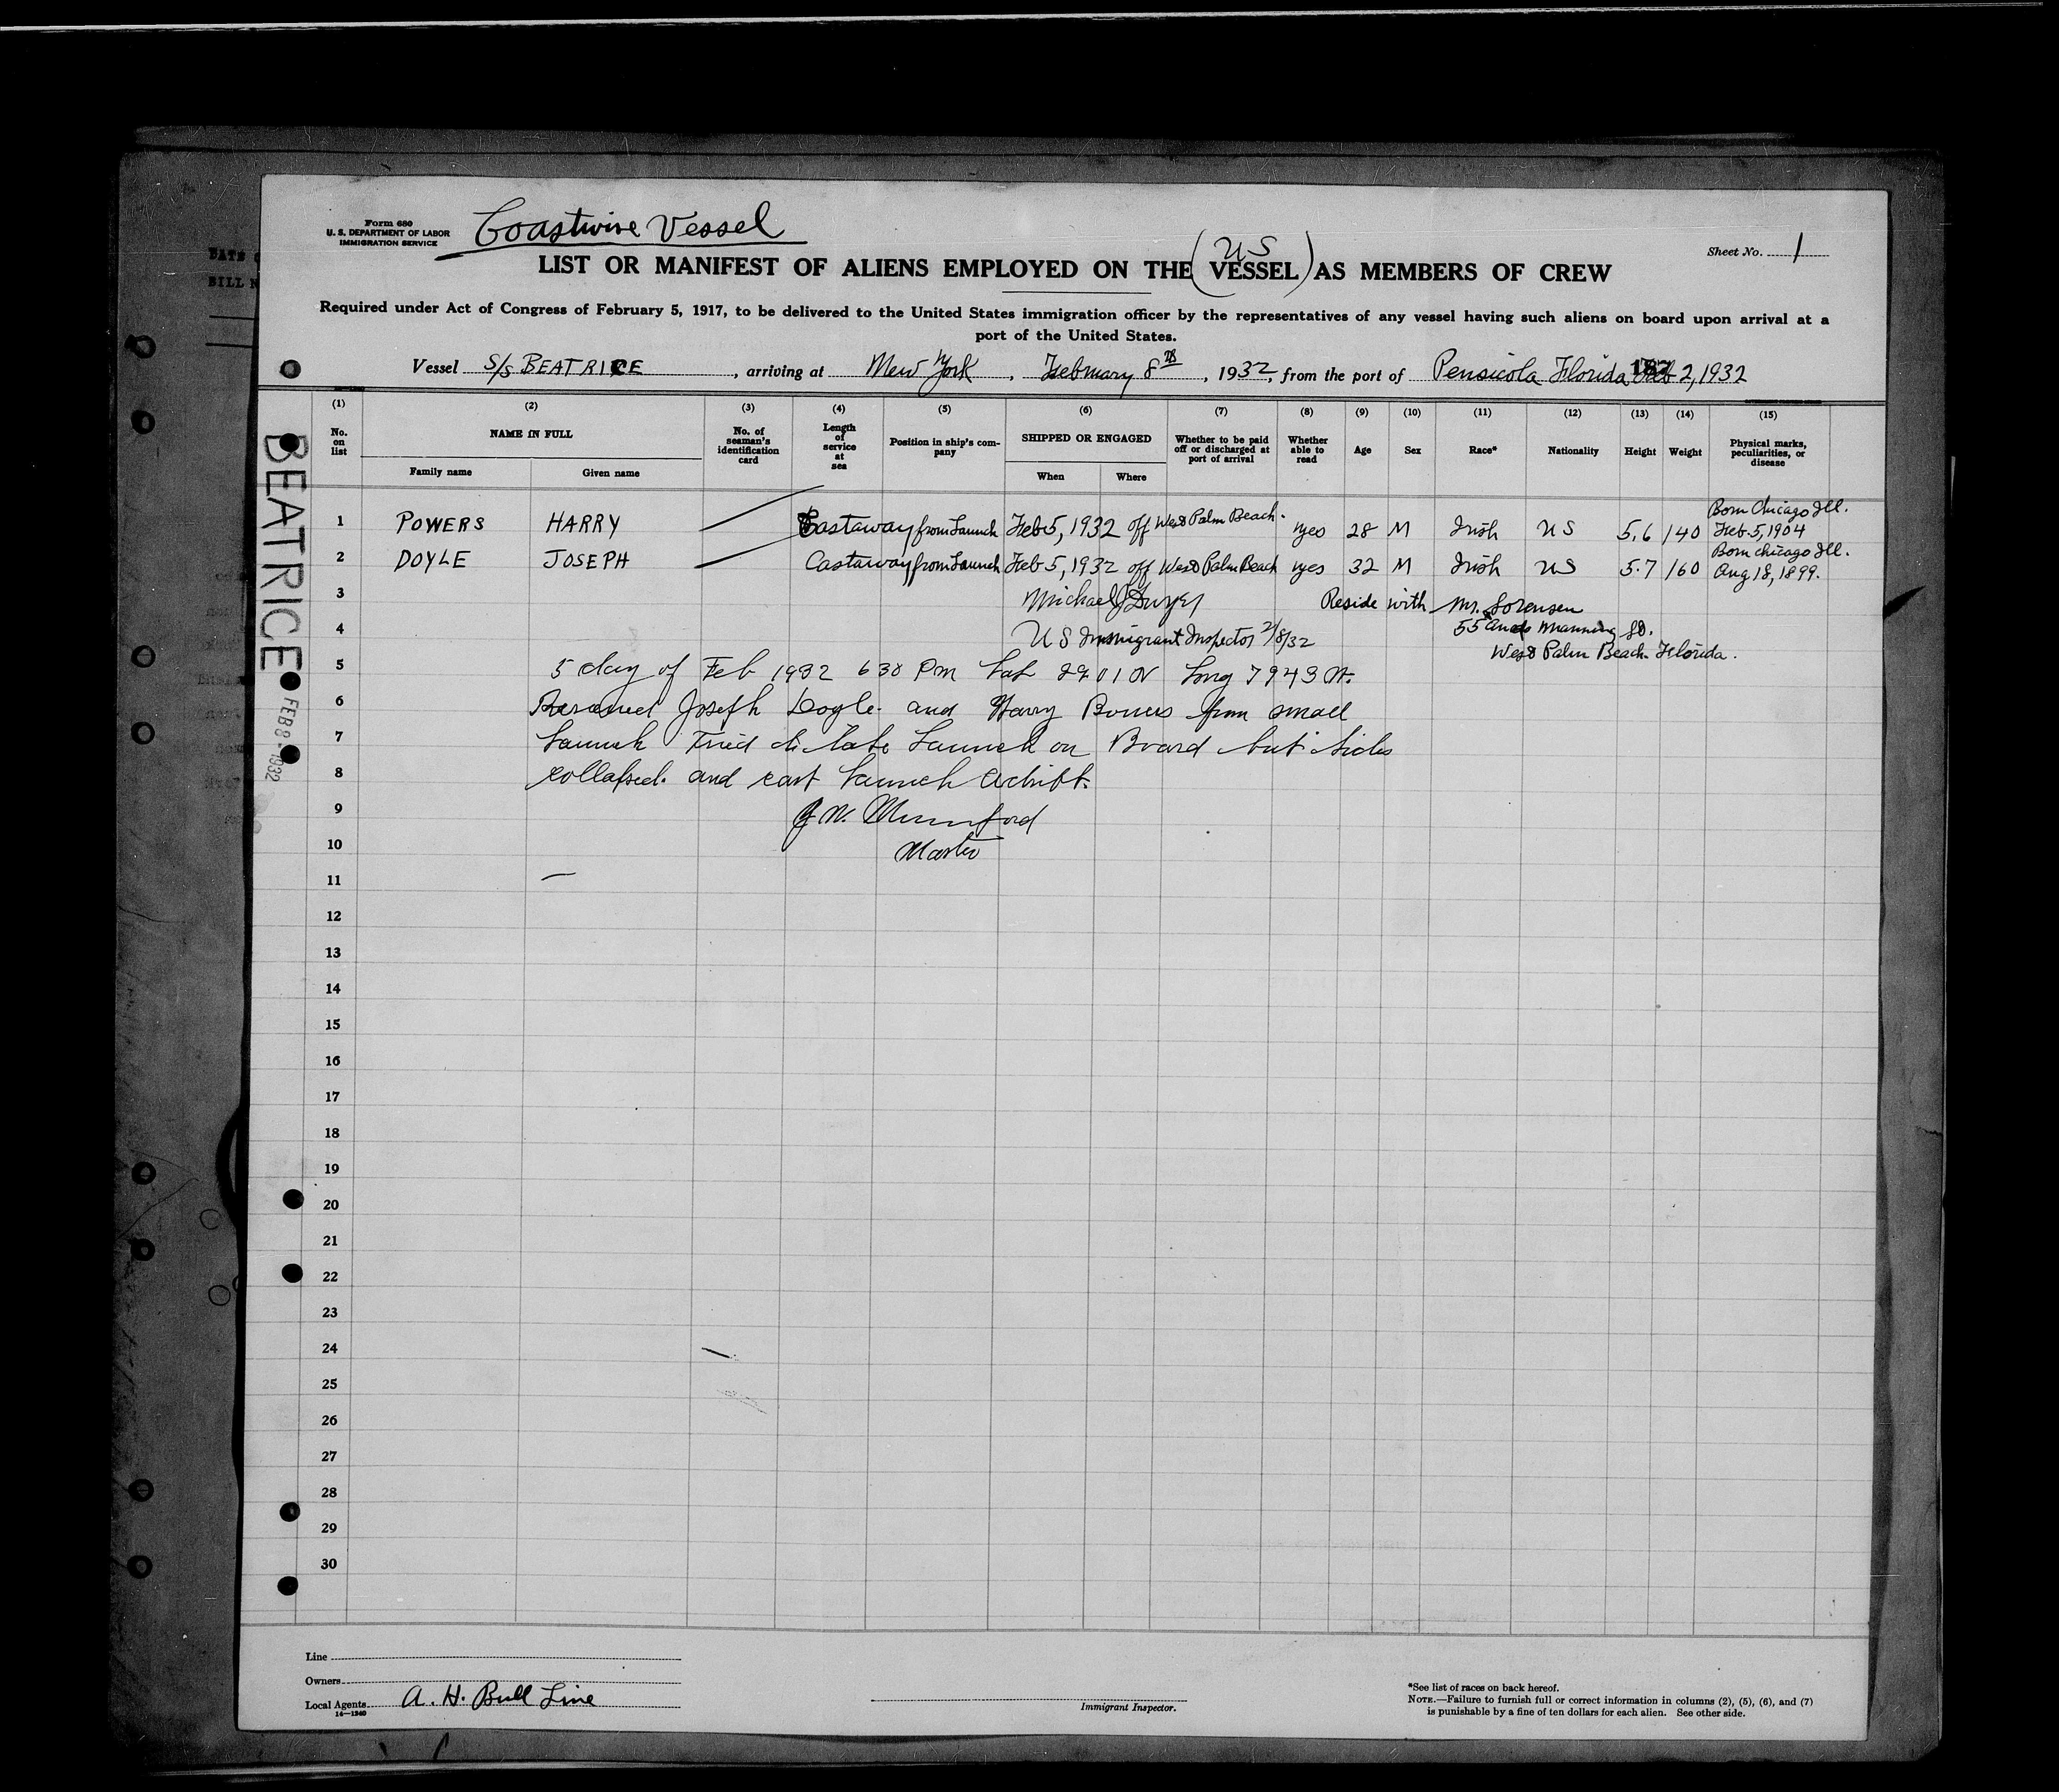 Form 680
U. S. DEPARTMENT OF LABOR
IMMIGRATION SERVICE
Coastwise Vessel
Sheet No. 1
US
LIST OR MANIFEST OF ALIENS EMPLOYED ON THE (VESSEL) AS MEMBERS OF CREW
Required under Act of Congress of February 5, 1917, to be delivered to the United States immigration officer by the representatives of any vessel having such aliens on board upon arrival at a
port of the United States.
Vessel S/S BEATRICE, arriving at New York, February 8th, 1932, from the port of Pensicola Florida Feb 2, 1932
(1) (2) (3) (4) (5) (6) (7) (8) (9) (10) (11) (12) (13) (14) (15)
No. on list
NAME IN FULL
Family name
Given name
No. of seaman's identification card
Length of service at sea
Position in ship's company
SHIPPED OR ENGAGED
When
Where
Whether to be paid off or discharged at port of arrival
Whether able to read
Age
Sex
Race*
Nationality
Height
Weight
Physical marks, peculiarities, or disease
1 POWERS HARRY Castaway from Launch Feb 5, 1932 off West Palm Beach. yes 28 M Irish US 5.6 140 Born Chicago Ill. Feb 5, 1904
2 DOYLE JOSEPH Castaway from Launch Feb 5, 1932 off West Palm Beach yes 32 M Irish US 5.7 160 Born Chicago Ill. Aug 18, 1899.
3 Michael J Dwyer Reside with Mr. Sorensen
4 US Immigrant Inspector 2/8/32 55 and Manning St.
West Palm Beach. Florida.
5 5 day of Feb 1932 630 Pm Lat 2901N Long 7943 W.
6 Rescued Joseph Doyle. and Harry Bowers from small
7 Launch Tried to take Launch on Board but sides
8 collapsed. and cast Launch adrift.
9 J W. Mumford
10 Master
11
12
13
14
15
16
17
18
19
20
21
22
23
24
25
26
27
28
29
30
BEATRICE
FEB 8 - 1932
Line
Owners
Local Agents A. H. Bull Line
14—1240
Immigrant Inspector.
*See list of races on back hereof.
NOTE.—Failure to furnish full or correct information in columns (2), (5), (6), and (7)
is punishable by a fine of ten dollars for each alien. See other side.